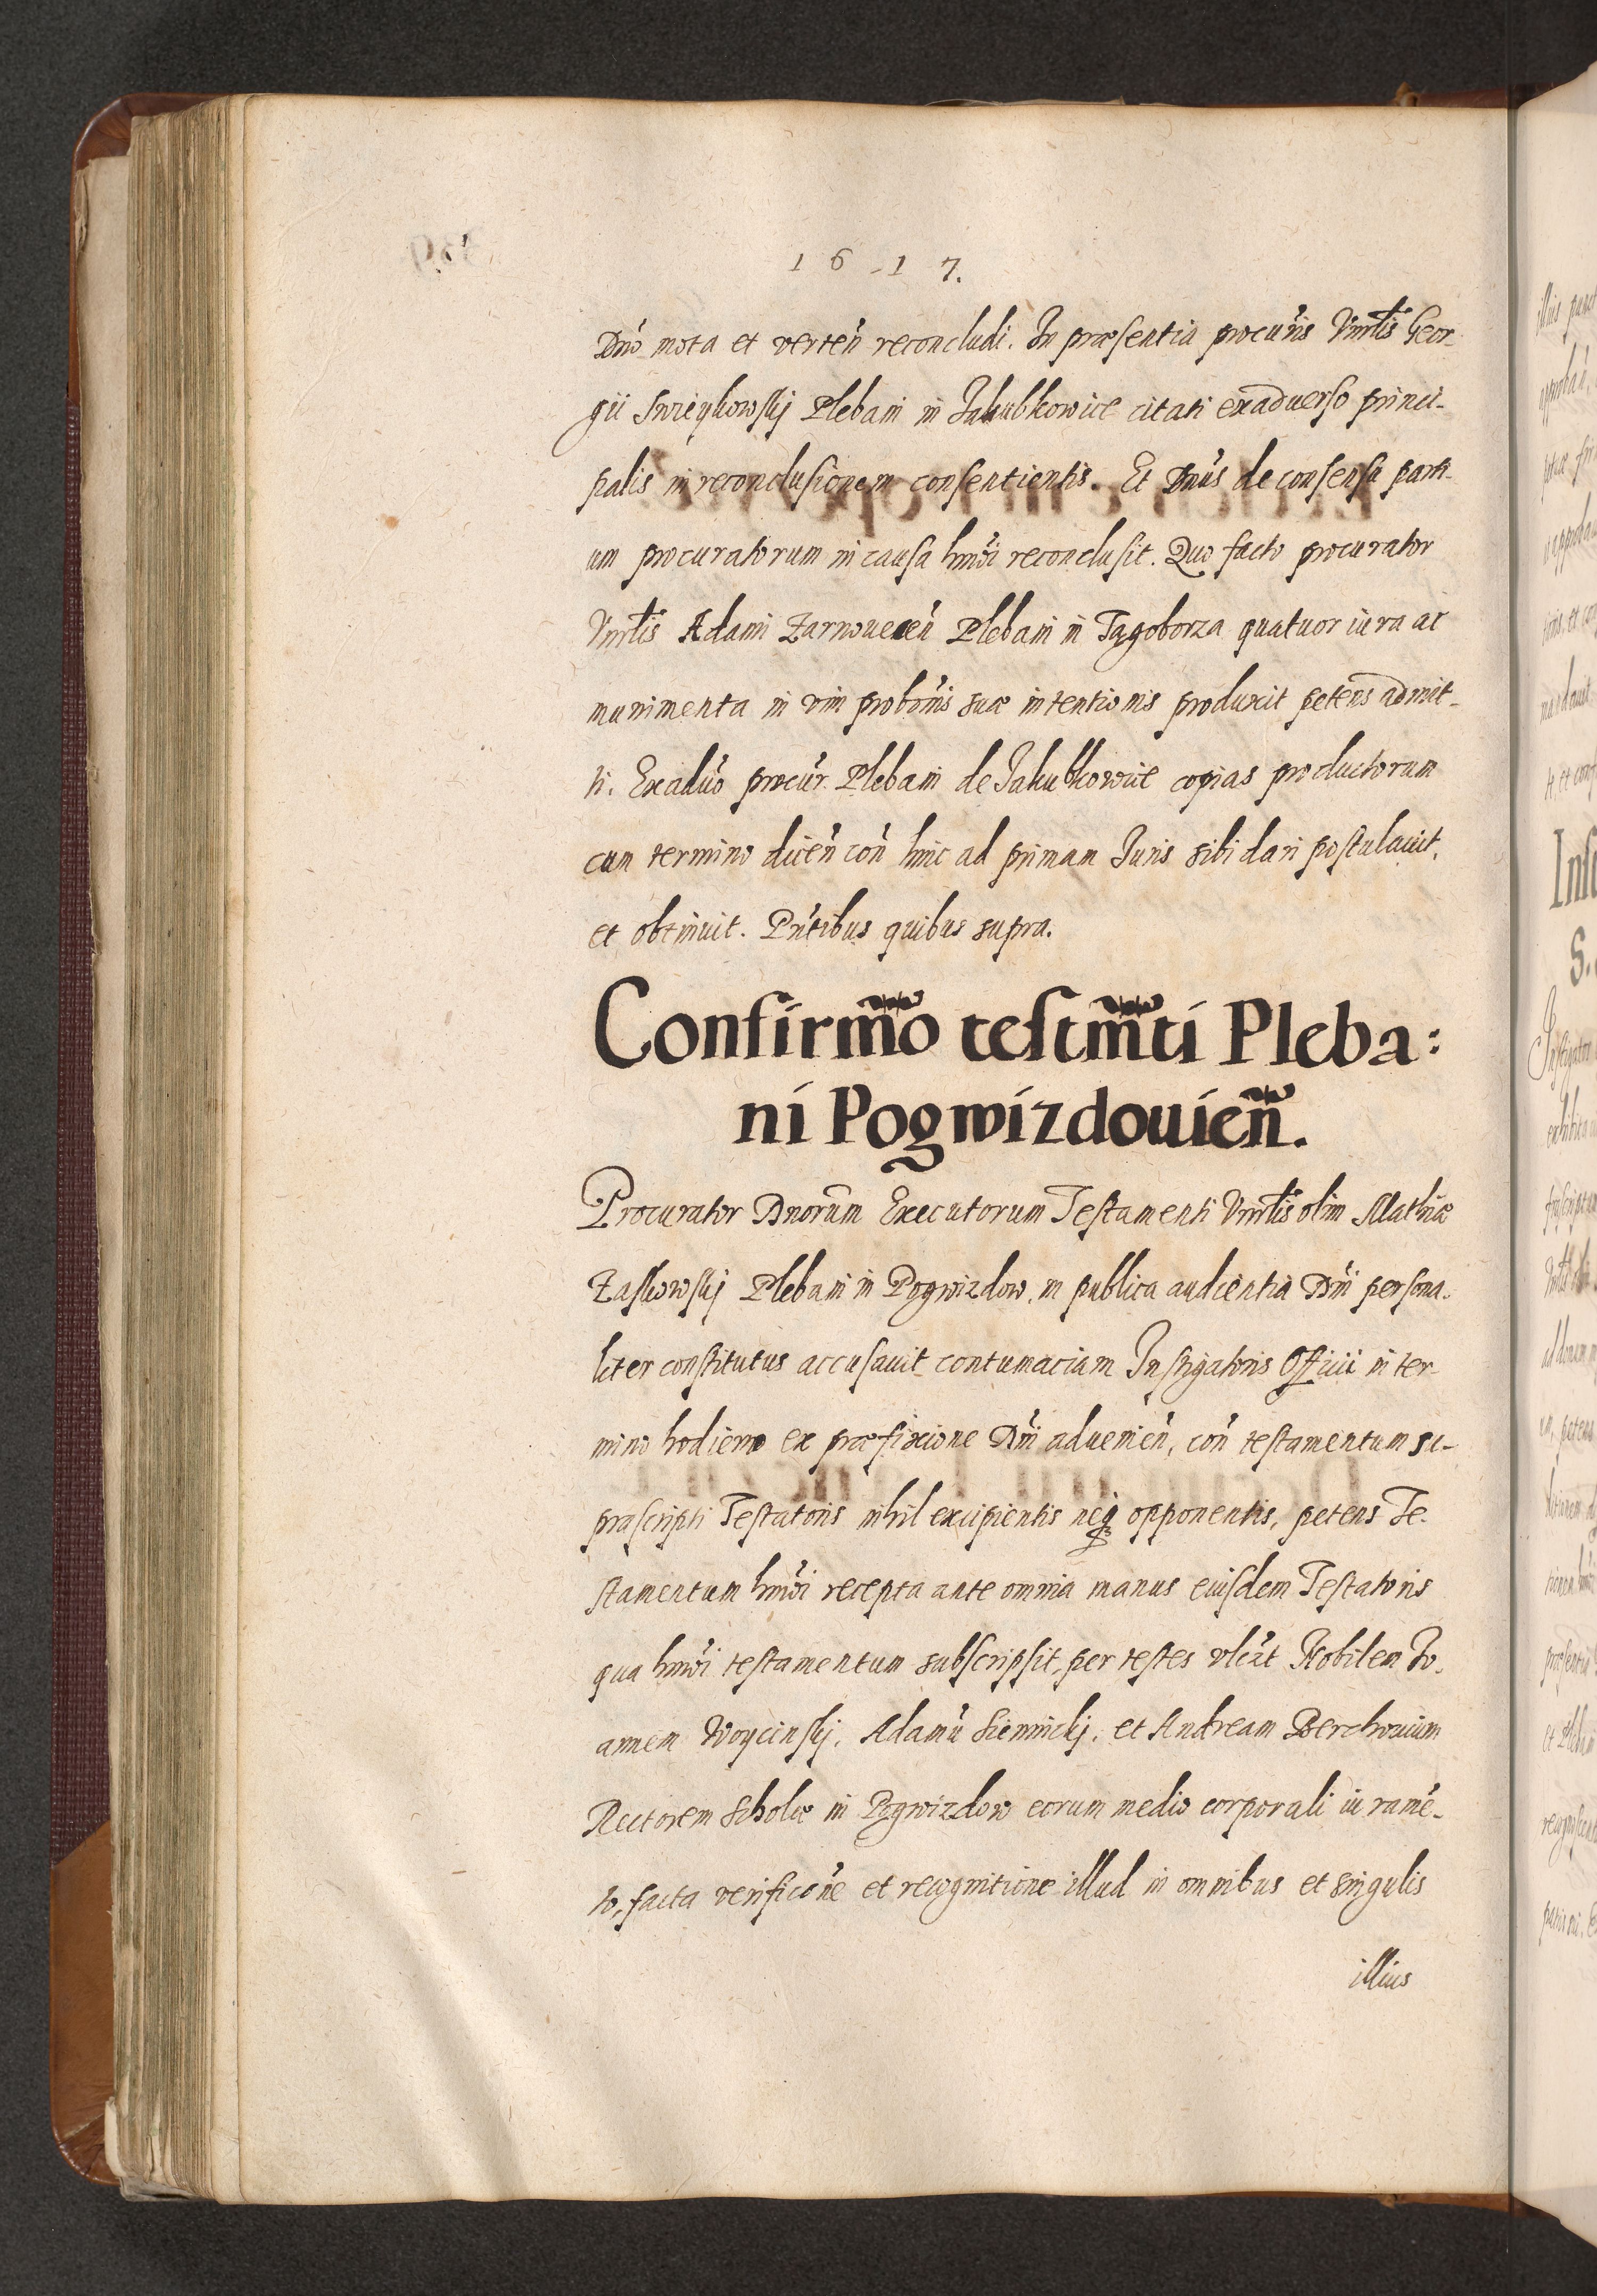 1 6 1 7.
Dno mota et verten reconcludi. In præsentia procuris Vnrlis Geor-
gii Swieykowskj Plebani in Jakubkowice citati exaduerso princi-
palis in reconclusionem consentientis. Et Dnus de consensu parti-
um procuratorum in causa hmoi reconclusit. Quo facto procurator
Vnrlis Adami Zarnowecen Plebani in Tągoborza quatuor iura ac
munimenta in vim probonis suæ intentionis produxit petens admit-
ti. Exaduo procur. Plebani de Jakubkowice copias productorum
cum termino dicen con hinc ad primam Juris sibi dari postulauit,
et obtinuit. Pntibus quibus supra.
Confirmo testmti Pleba:
ni Pogwizdouien.
Procurator Dnorum Executorum Testamenti Vnrlis olim Mathiæ
Zaskowskj Plebani in Pogwizdow, in publica audientia Dni persona-
liter constitutus accusauit contumaciam Instigatoris Officii in ter-
mino hodierno ex præfixione Dni aduenien, con testamentum su-
prascripti Testatoris nihil excipientis neq opponentis, petens Te-
stamentum hmoi recepta ante omnia manus eiusdem Testatoris
qua hmoi testamentum subscripsit, per testes vlczt Nobilem Jo-
annem Woycinskj, Adamu Siennickj, et Andream Berchouium
Rectorem Scholæ in Pogwizdow eorum medio corporali iurame-
to, facta verificone et recognitione illud in omnibus et singulis
illius